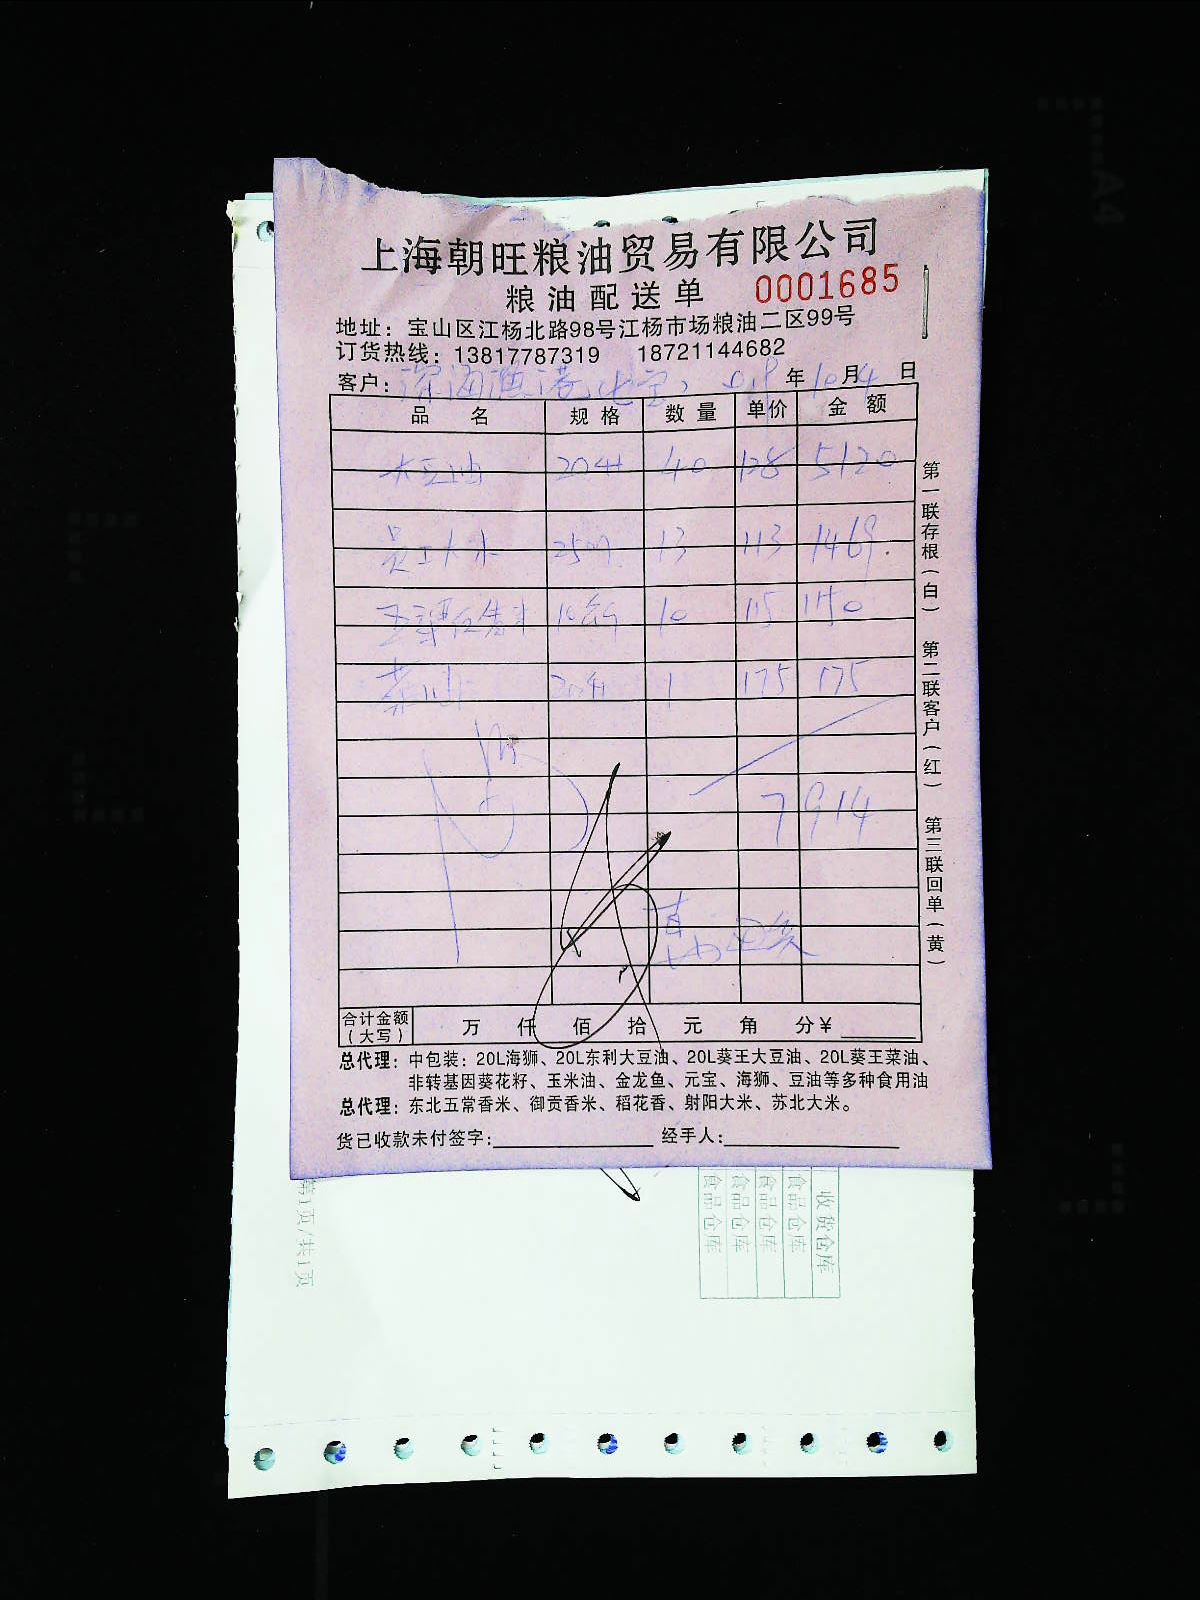 上海朝旺粮油贸易有限公司
粮油配送单 0001685
地址：宝山区江杨北路98号江杨市场粮油二区99号
订货热线：13817787319 18721144682
客户： 年10月4日
品名 规格 数量 单价 金额
大豆油 20升 40 128 5120
员工大米 13 113 1469.
10 115 1150
菜油 20升 1 175 175
7914
合计金额（大写） 万 仟 佰 拾 元 角 分￥
总代理：中包装：20L海狮、20L东利大豆油、20L葵王大豆油、20L葵王菜油、
非转基因葵花籽、玉米油、金龙鱼、元宝、海狮、豆油等多种食用油
总代理：东北五常香米、御贡香米、稻花香、射阳大米、苏北大米。
货已收款未付签字： 经手人：
第一联存根（白）
第二联客户（红）
第三联回单（黄）
第1页/共1页
收货仓库
食品仓库
食品仓库
食品仓库
食品仓库
A4